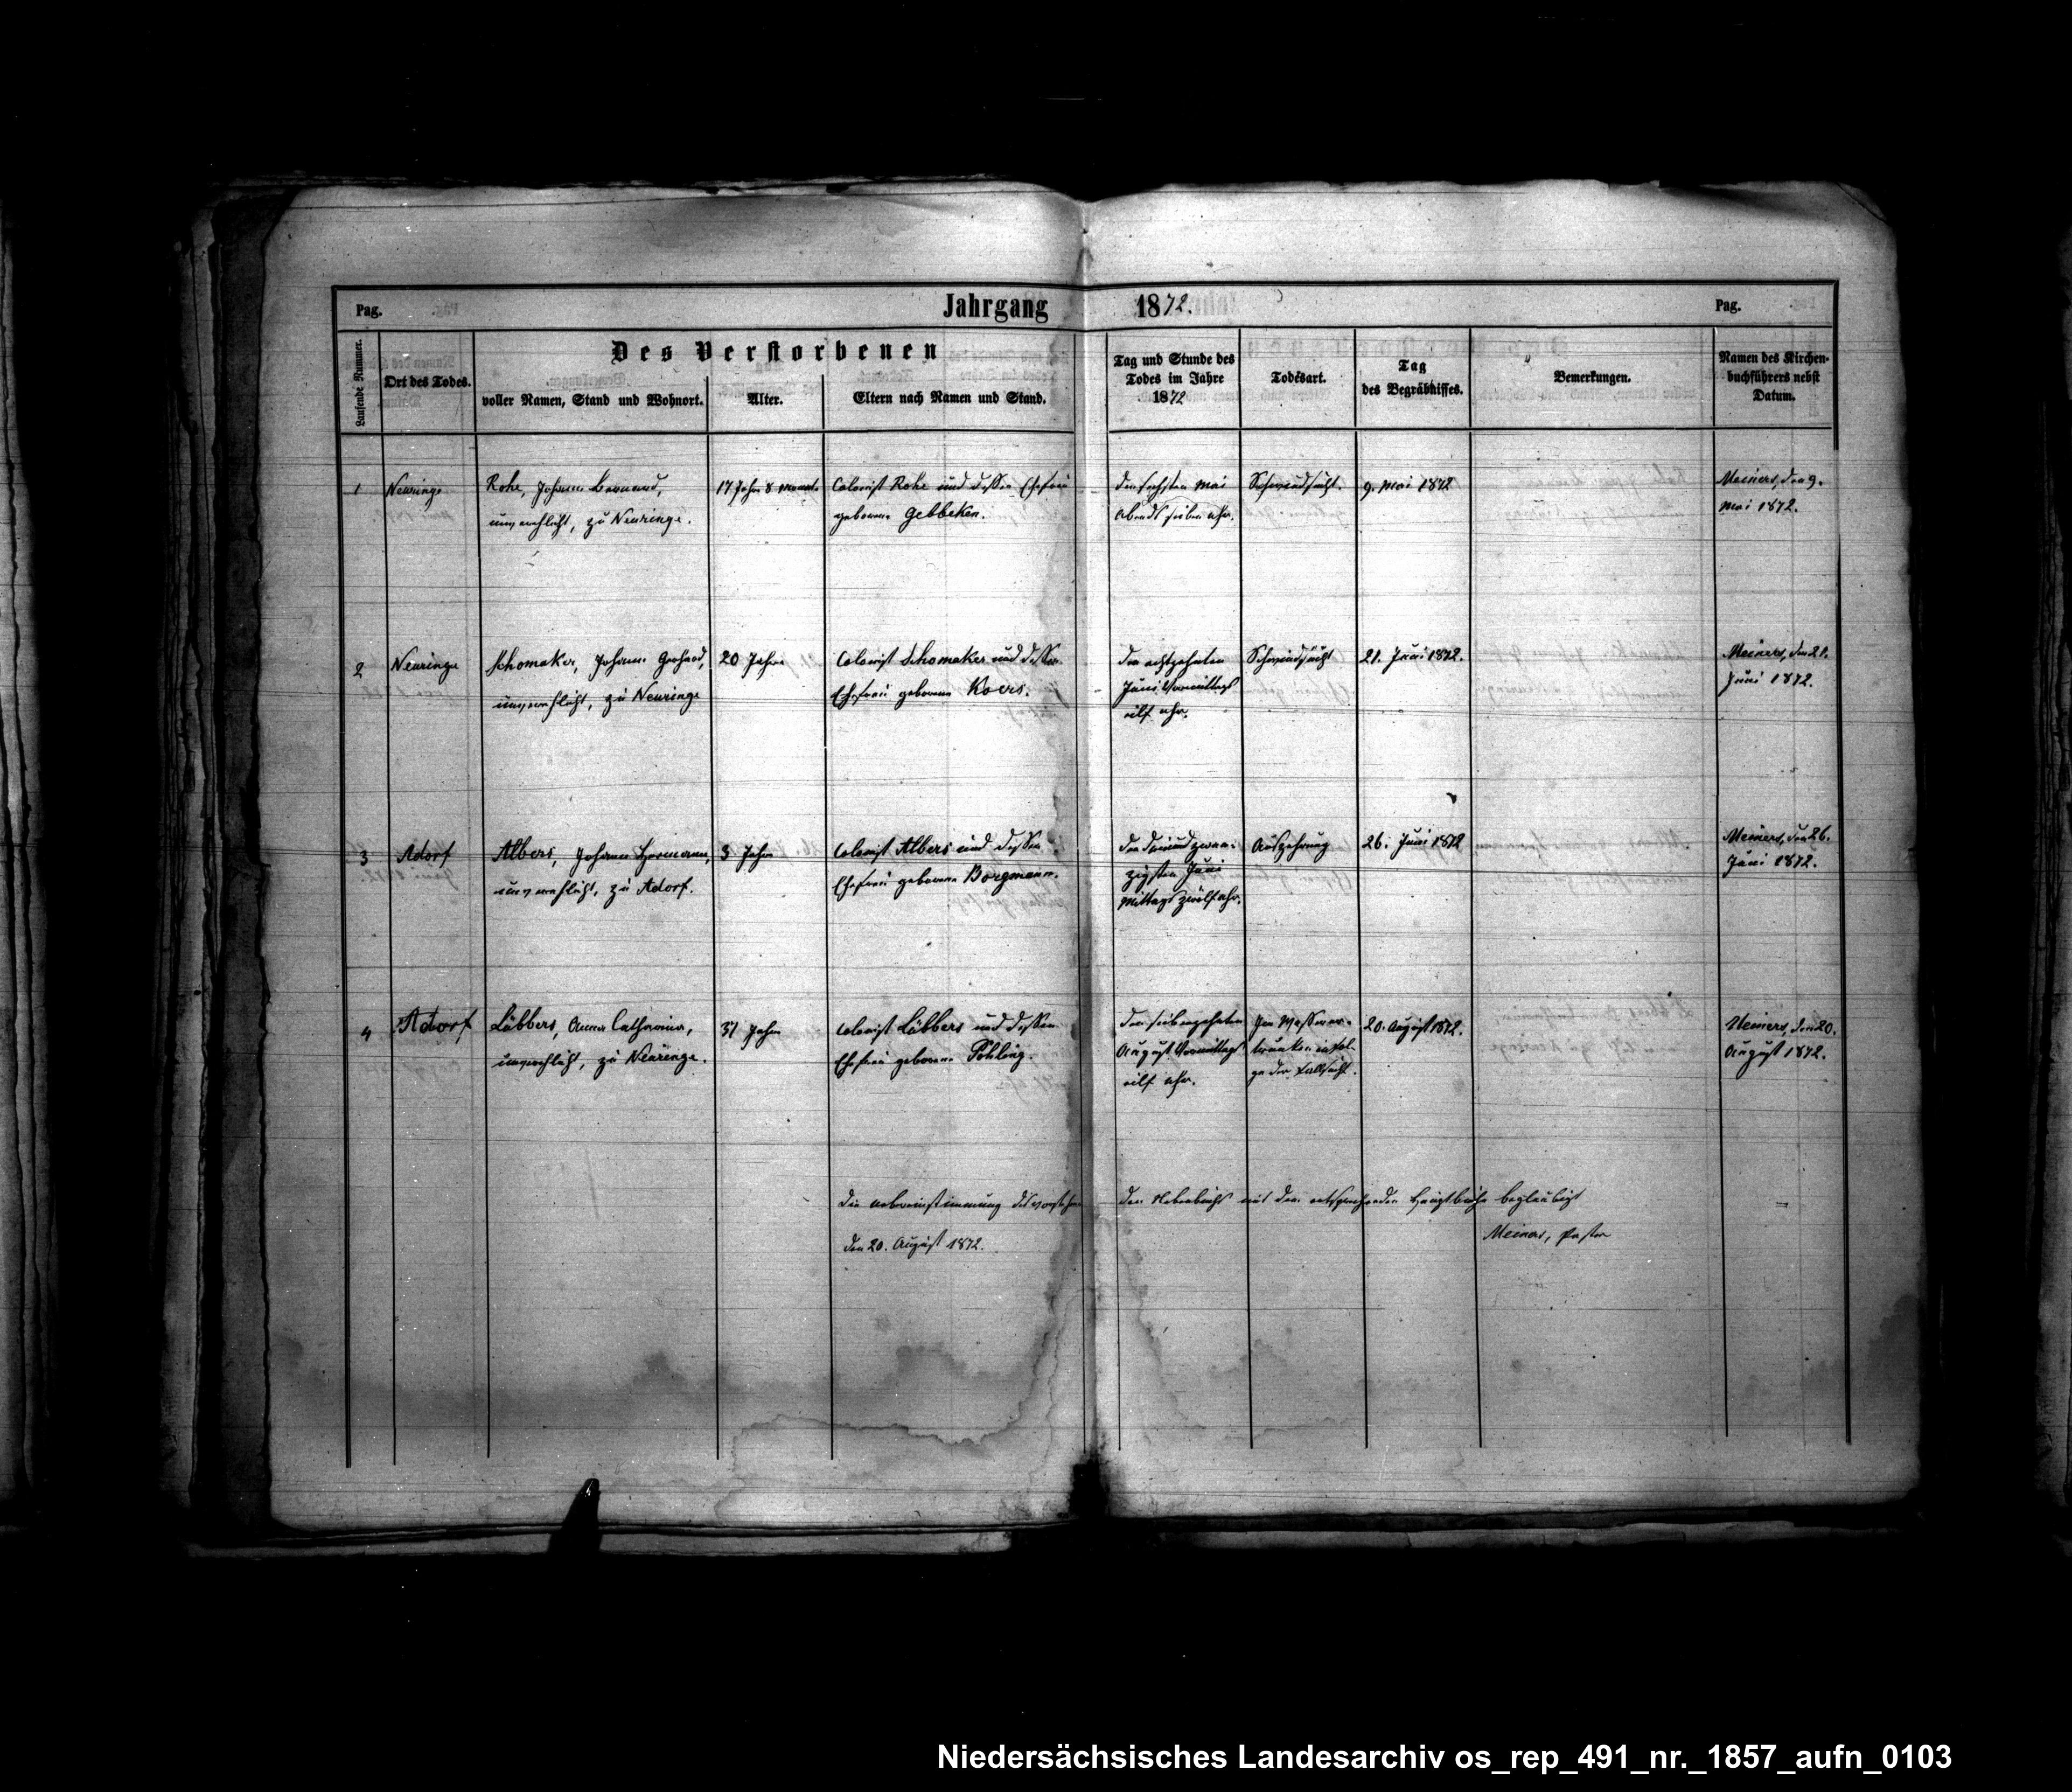 Pag.
Jahrgang 1872.
Pag.
Laufende Nummer.
Ort des Todes.
Des Verstorbenen
voller Namen, Stand und Wohnort.
Alter.
Eltern nach Namen und Stand.
Tag und Stunde des
Todes im Jahre
1872
Todesart.
Tag
des Begräbnisses.
Bemerkungen.
Namen des Kirchen-
buchführers nebst
Datum.
1
Neuringe
Rohe, Johann Bernard,
unverehlicht, zu Neuringe.
17 Jahr 8 Monat.
Colonist Rohe und dessen Ehefrau
geborene Gebbeken.
den sechsten Mai
Abends sieben Uhr.
Schwindsucht.
9. Mai 1872
Meiners, den 9.
Mai 1872.
2
Neuringe
Schomaker, Johann Gerhard,
unverehlicht, zu Neuringe
20 Jahre
Colonist Schomaker und dessen
Ehefrau geborene Koers.
den achtzehnten
Juni Vormittags
eilf Uhr.
Schwindsucht
21. Juni 1872.
Meiners, den 21.
Juni 1872.
3
Adorf
Albers, Johann Hermann,
unverehlicht, zu Adorf.
3 Jahre
Colonist Albers und dessen
Ehefrau geborene Borgmann.
den dreiundzwan-
zigsten Juni
Mittags zwölf Uhr.
Auszehrung
26. Juni 1872
Meiners, den 26.
Juni 1872.
4
Adorf
Lübbers, Anna Catharina,
unverehlicht, zu Neuringe.
37 Jahre
Colonist Lübbers und dessen
Ehefrau geborene Pöhling.
den siebenzehnten
August Vormittags
eilf Uhr.
Im Wasser er-
trunken infol-
ge der Fallsucht.
20. August 1872.
Meiners, den 20.
August 1872.
Die Uebereinstimmung des vorstehen
den Nebenbuchs mit dem entsprechenden Hauptbuche beglaubigt
den 20. August 1872.
Meiners, Pastor
Niedersächsisches Landesarchiv os_rep_491_nr._1857_aufn_0103